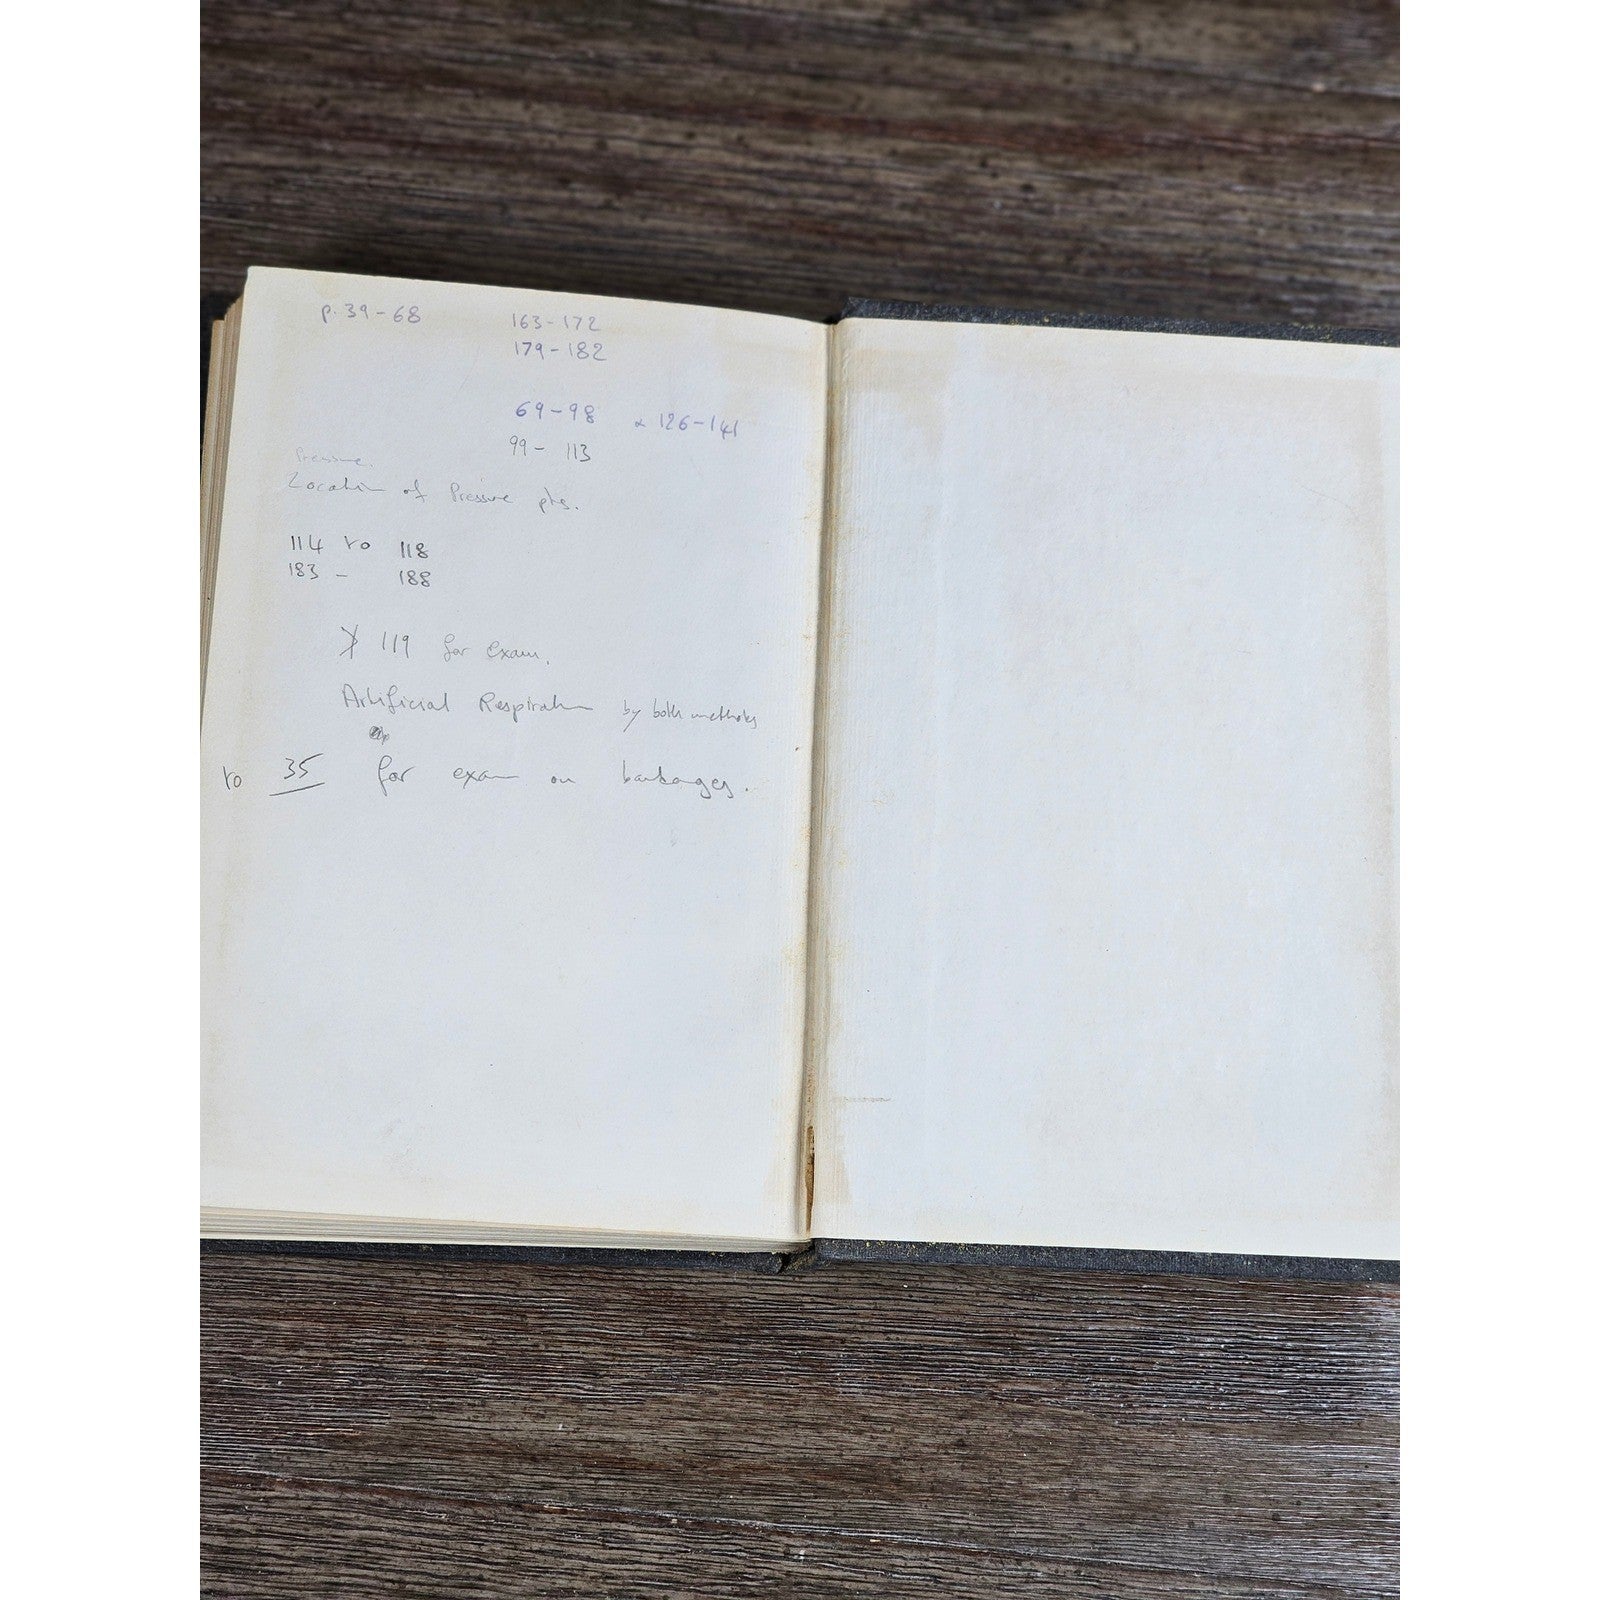 p. 39-68 163-172
179-182
69-98 & 126-141
99- 113
Pressure.
Location of Pressure pts.
114 to 118
183 - 188
119 for exam.
Artificial Respiration by both methods
to 35 for exam on bandages.